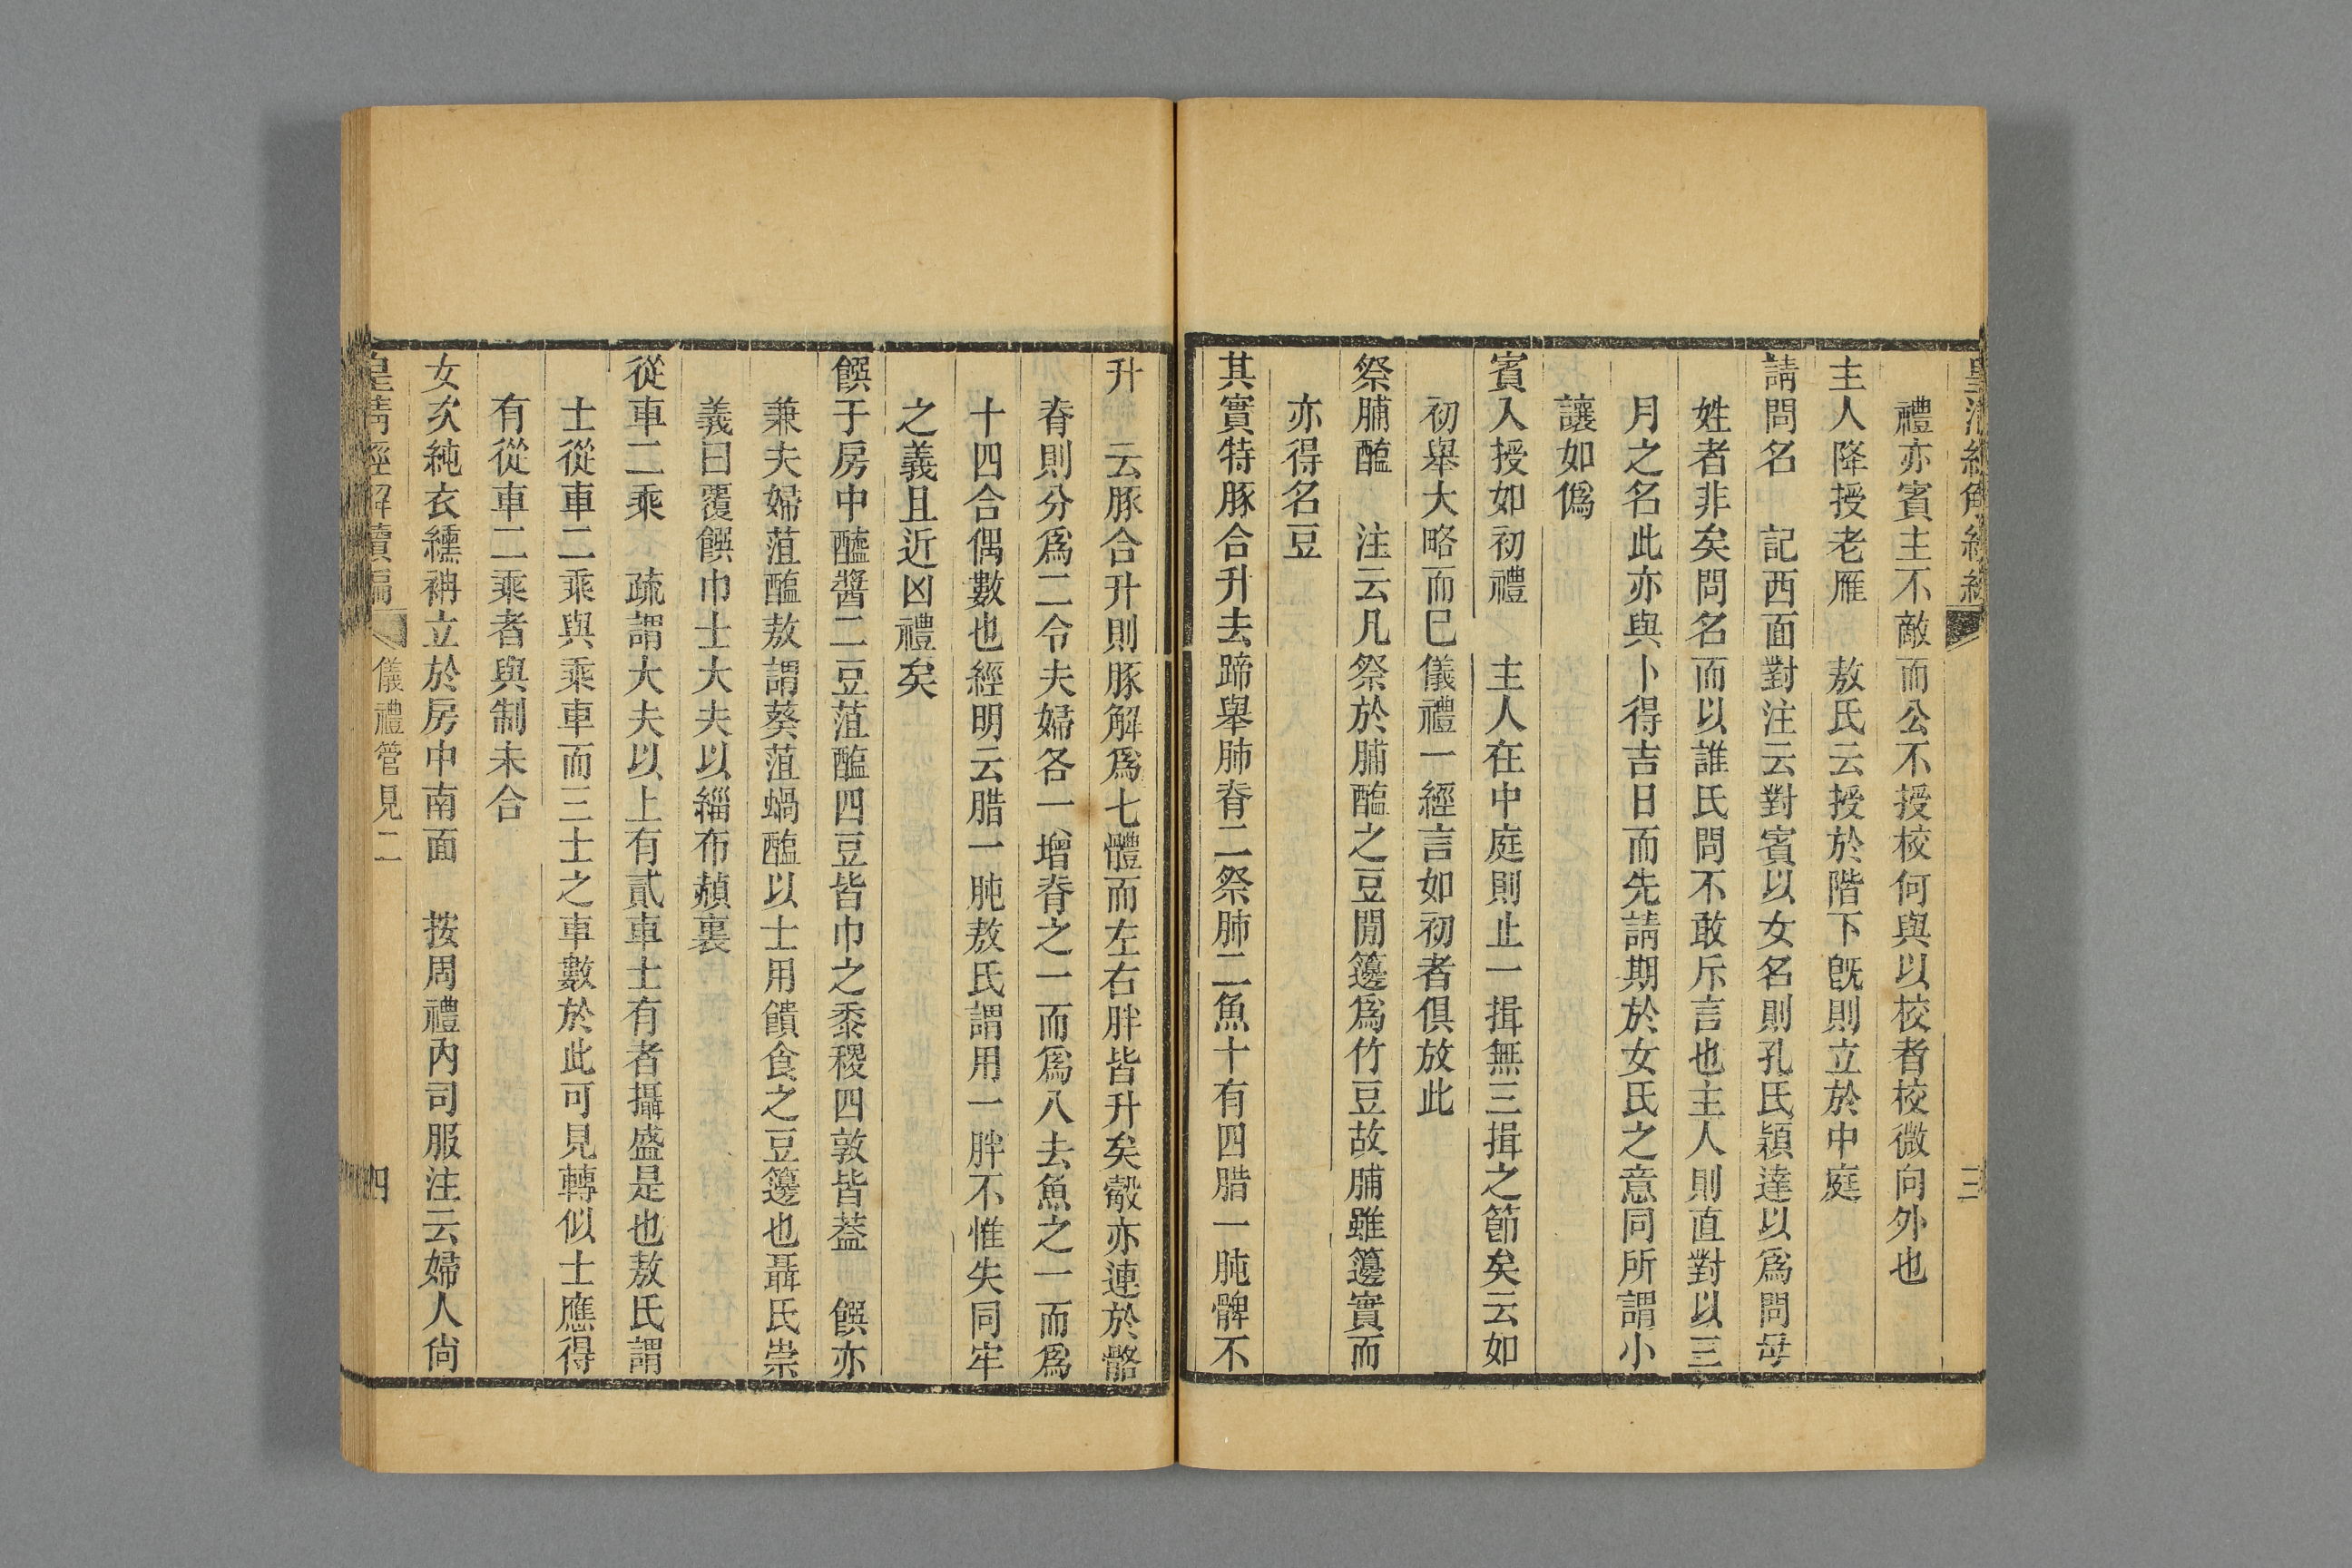 三
禮亦賓主不敵而公不授校何與以校者校微向外也
主人降授老雁　敖氏云授於階下旣則立於中庭
請問名　記西面對注云對賓以女名則孔氏穎達以爲問母
姓者非矣問名而以誰氏問不敢斥言也主人則直對以三
月之名此亦與卜得吉日而先請期於女氏之意同所謂小
讓如僞
賓入授如初禮　主人在中庭則止一揖無三揖之節矣云如
初舉大略而巳儀禮一經言如初者俱放此
祭脯醢　注云凡祭於脯醢之豆閒籩爲竹豆故脯雖籩實而
亦得名豆
其實特豚合升去蹄舉肺脊二祭肺二魚十有四腊一肫髀不
升　云豚合升則豚解爲七體而左右胖皆升矣觳亦連於骼
脊則分爲二令夫婦各一增脊之一而爲八去魚之一而爲
十四合偶數也經明云腊一肫敖氏謂用一胖不惟失同牢
之義且近凶禮矣
饌于房中醯醬二豆菹醢四豆皆巾之黍稷四敦皆葢　饌亦
兼夫婦菹醢敖謂葵菹蝸醢以士用饋食之豆籩也聶氏崇
義曰覆饌巾士大夫以緇布赬裏
從車二乘　疏謂大夫以上有貳車士有者攝盛是也敖氏謂
士從車二乘與乘車而三士之車數於此可見轉似士應得
有從車二乘者與制未合
女次純衣纁袡立於房中南面　按周禮內司服注云婦人尙
皇清經解續編　儀禮管見二　四